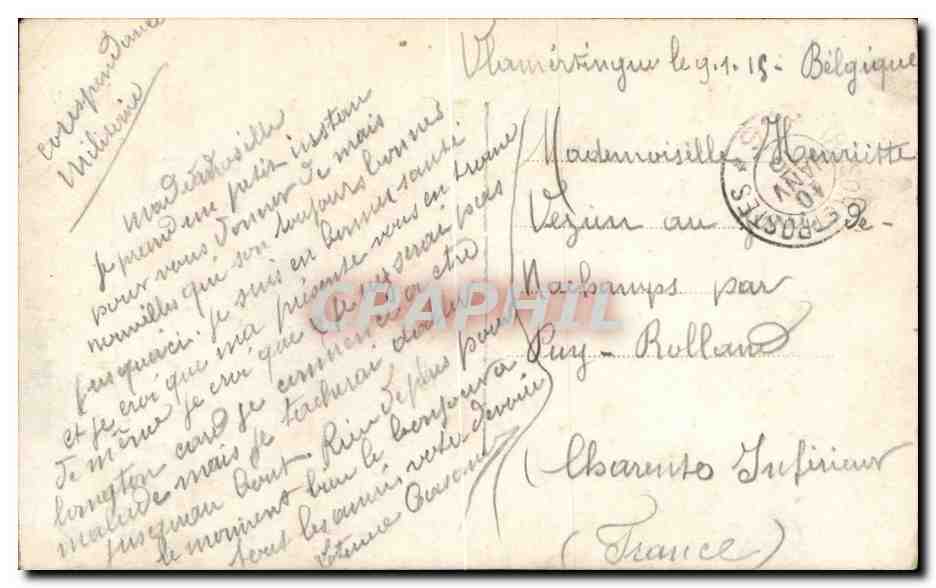 Corespondance
Militairie
Vlamertingue le 9.1.15- Bélgique
Mademoiselle
Je prend un petit instan
pour vous donner de mais
nouvelles qui son toujours bonnes
jusquaici. je suis en bonne santé
et je croi que ma présente vous en trouve
de même je croi que je ne serai pas
longton card je commence a etre
malade mais je tacherai daller
jusquau bout. Rien de plus pour
le moment bien le bonjour a
tout les amis votre devoué
Etienne
Mademoiselle Henriette
Vezin au de-
Nachamps par
Puy-Rolland
(Charente Inférieur
(France)
POSTES
10
JANV
CPAPHIL